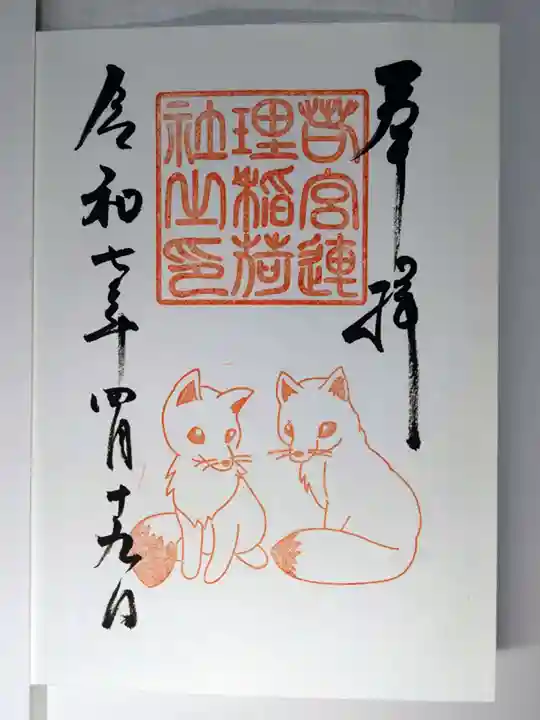 奉拝
若宮連
理稲荷
社之印
令和七年四月十九日